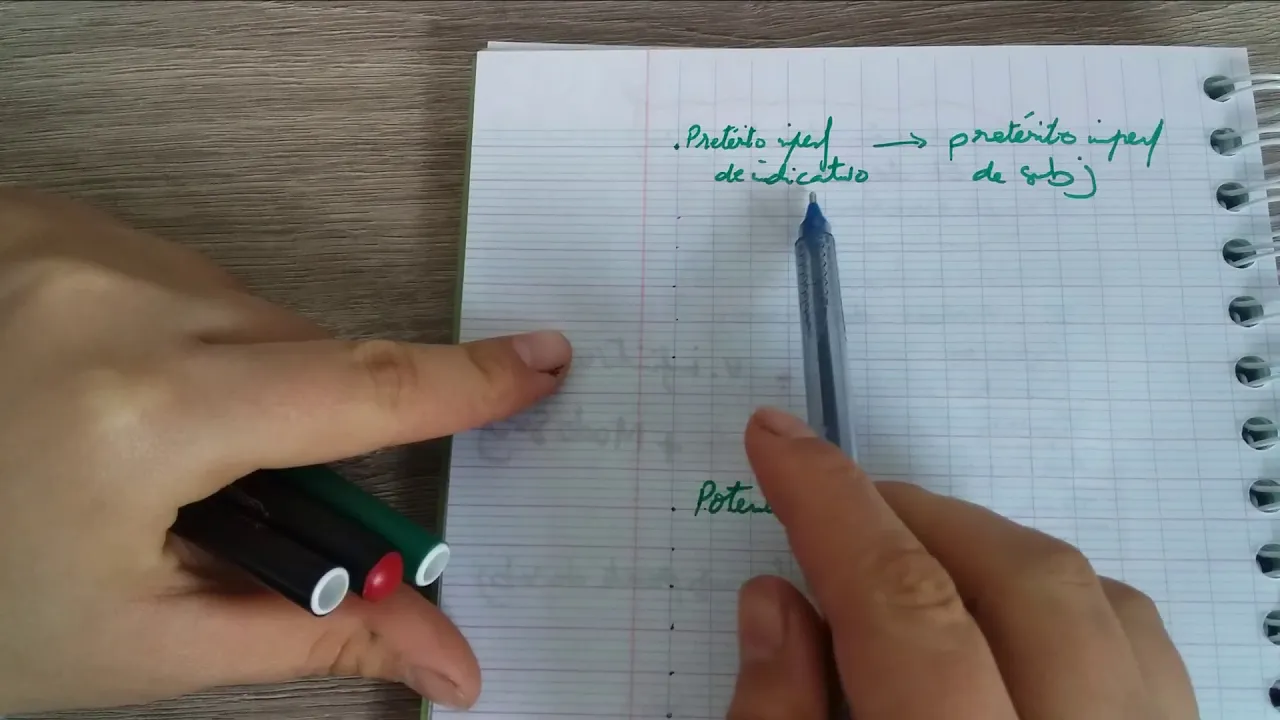 . Pretérito imperf → pretérito imperf
de indicativo de subj
. Poten